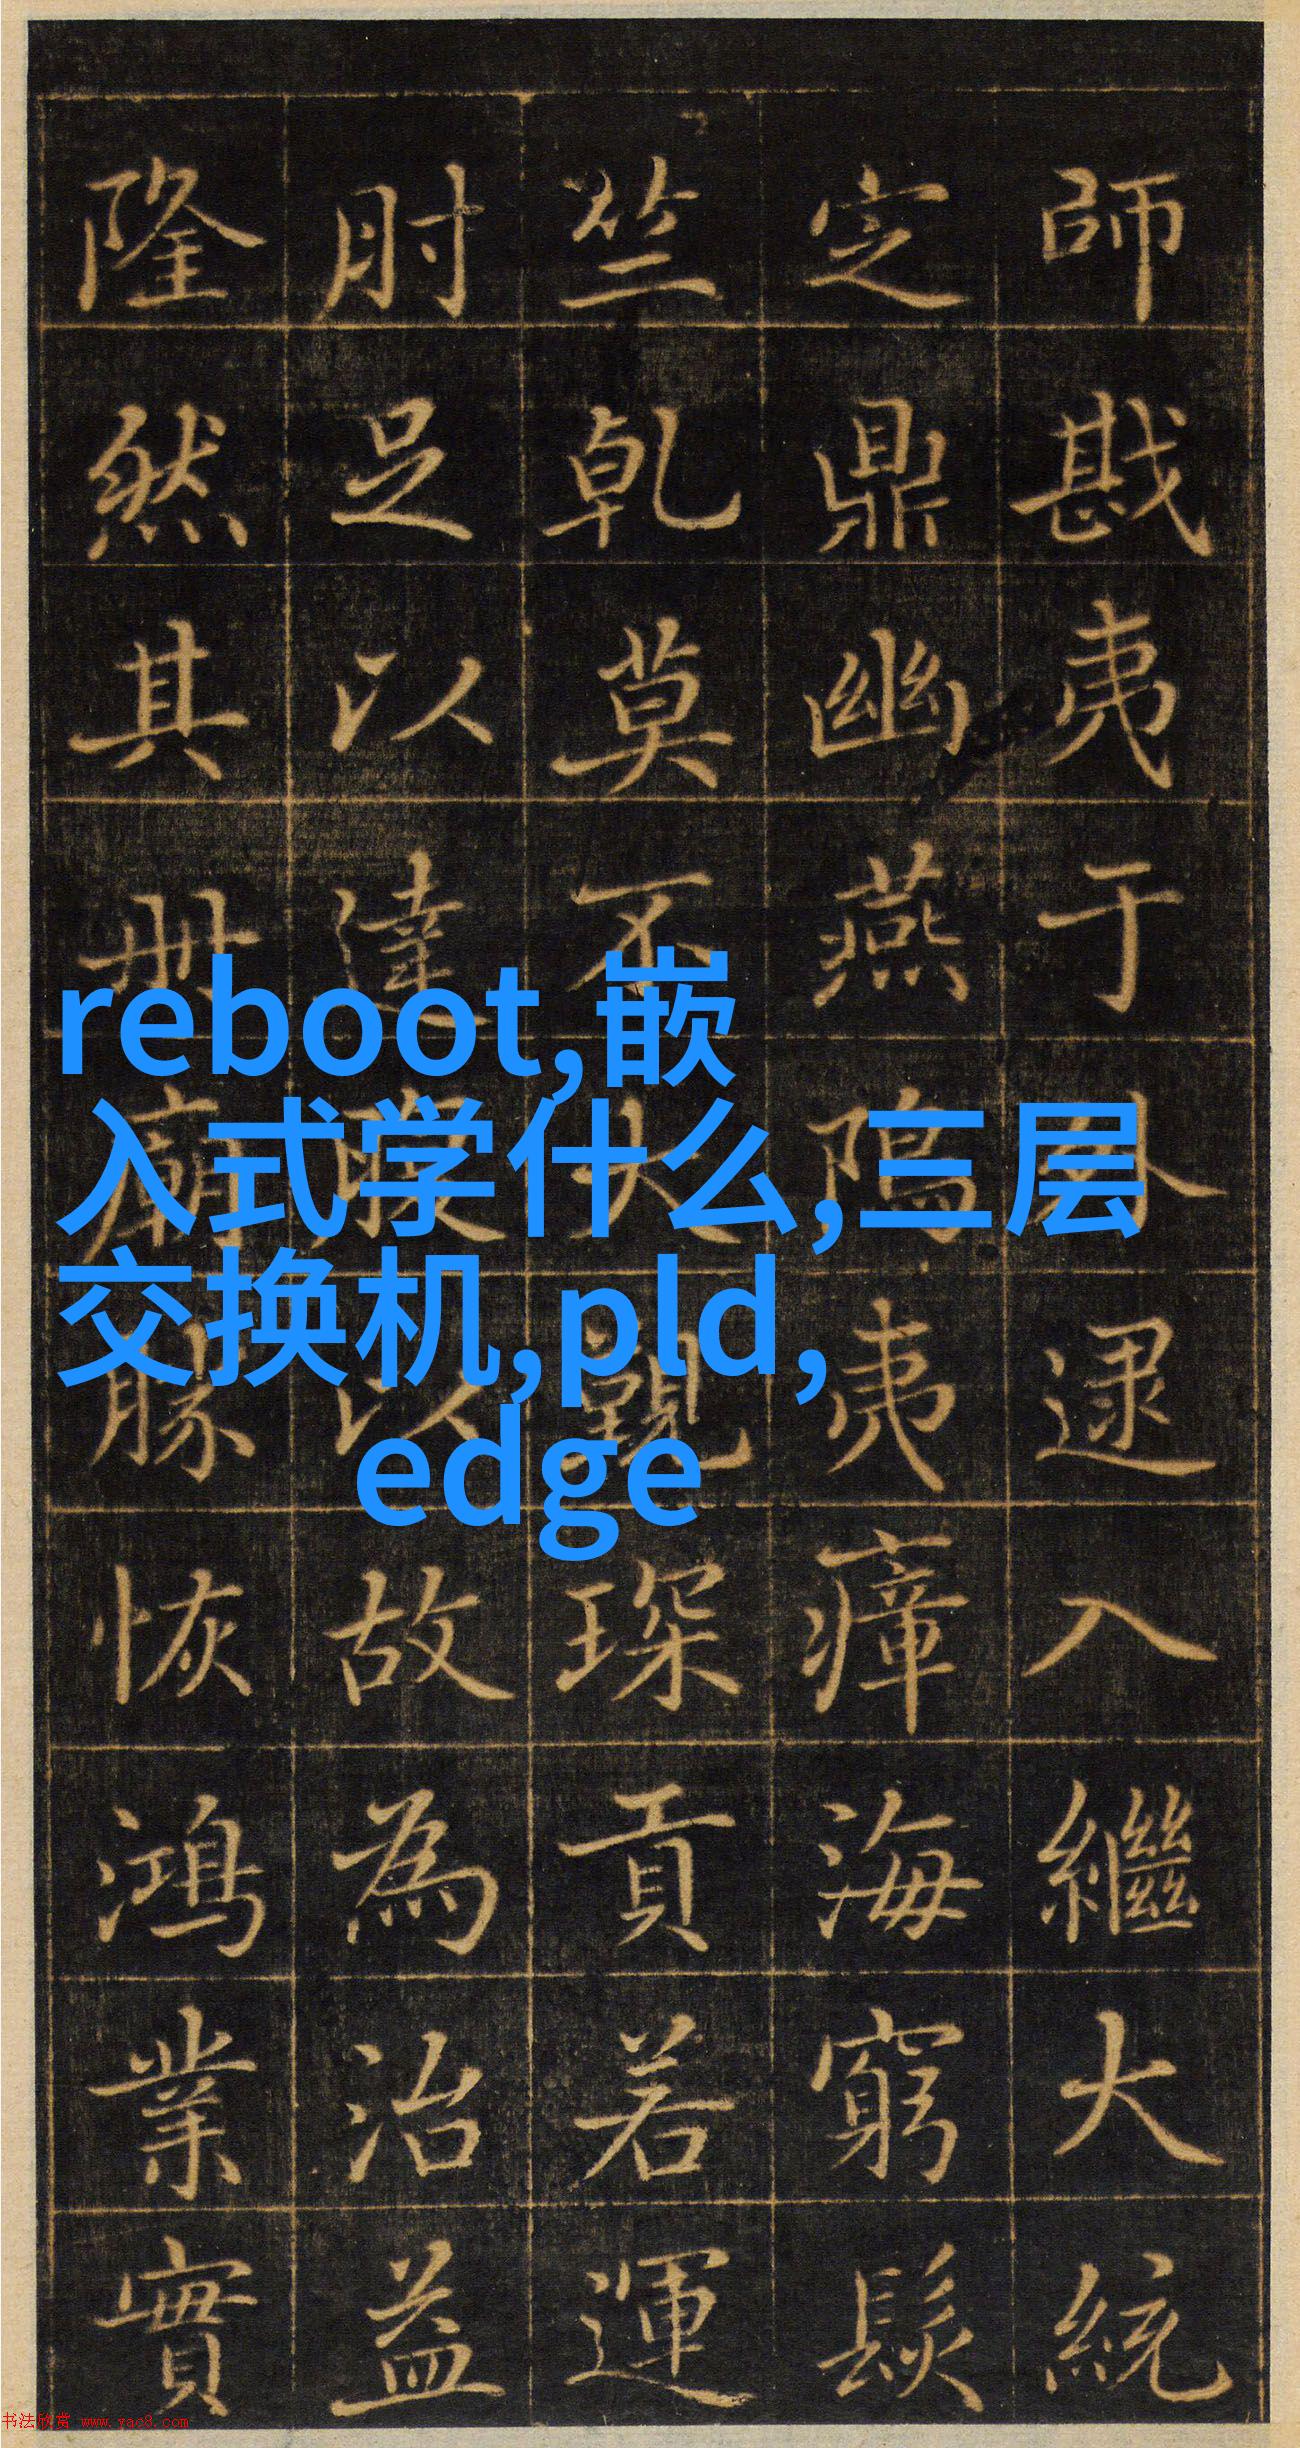 reboot,嵌
入式学什么,三层
交换机,pld,
edge
師戡夷于外逮入繼大統
定鼎幽燕隝夷瘴海窮髮
竺乾莫不覲琛貢若運
肘足以達以故為治益
隆然其册廟勝恢鴻業實
书法欣赏 www.yac8.com